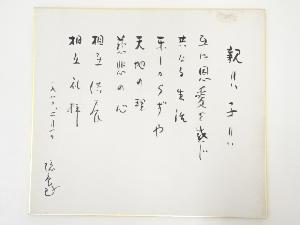 親リ子リ
互に恩愛を感じ
共なる生活
楽しからずや
天地の理
慈悲の心
相互供养
相互礼拝